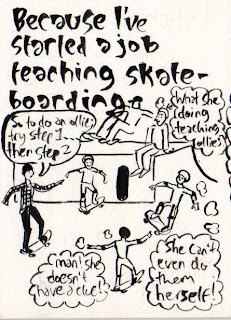 Because I've
started a job
teaching skate-
boarding.
So to do an ollie,
try step 1...
then step 2
What she
doing
teaching
ollies
man! she
doesn't
have a clue!
She can't
even do
them
herself!